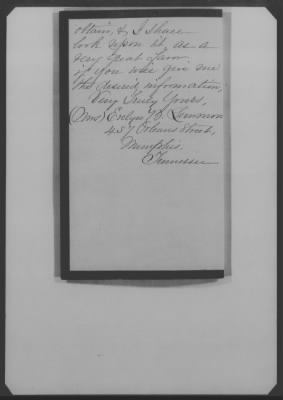 obtain, & I shall
look upon it, as a
very great favor
if you will give me
the desired information.
Very Truly Yours,
(Mrs) Evelyn B.
457 Orleans Street,
Memphis.
Tennessee